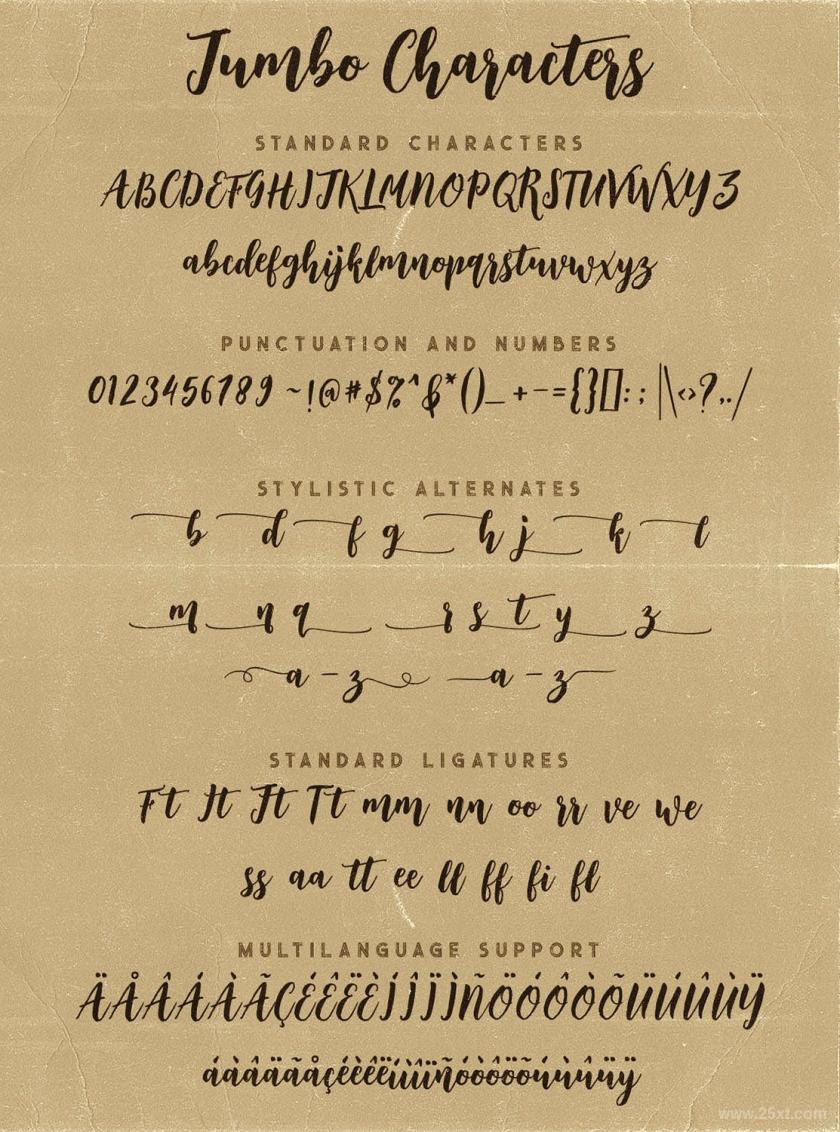 Jumbo Characters
STANDARD CHARACTERS
ABCDEFGHIJKLMNOPQRSTUVWXYZ
abcdefghijklmnopqrstuvwxyz
PUNCTUATION AND NUMBERS
0123456789 ~!@#$%^&*()_+-={}[]:;|\<>?,./
STYLISTIC ALTERNATES
b d f g h j k l
m n q r s t y z
a - z a - z
STANDARD LIGATURES
Ft It Jt Tt mm nn oo rr ve we
ss aa tt ee ll ff fi fl
MULTILANGUAGE SUPPORT
ÄÅÂÁÀÃÇÉÊËÈÍÎÏÌÑÖÓÔÒÕÜÚÛÙŸ
áàâäãåçéèêëíìîïñóòôöõúùûüÿ
www.25xt.com